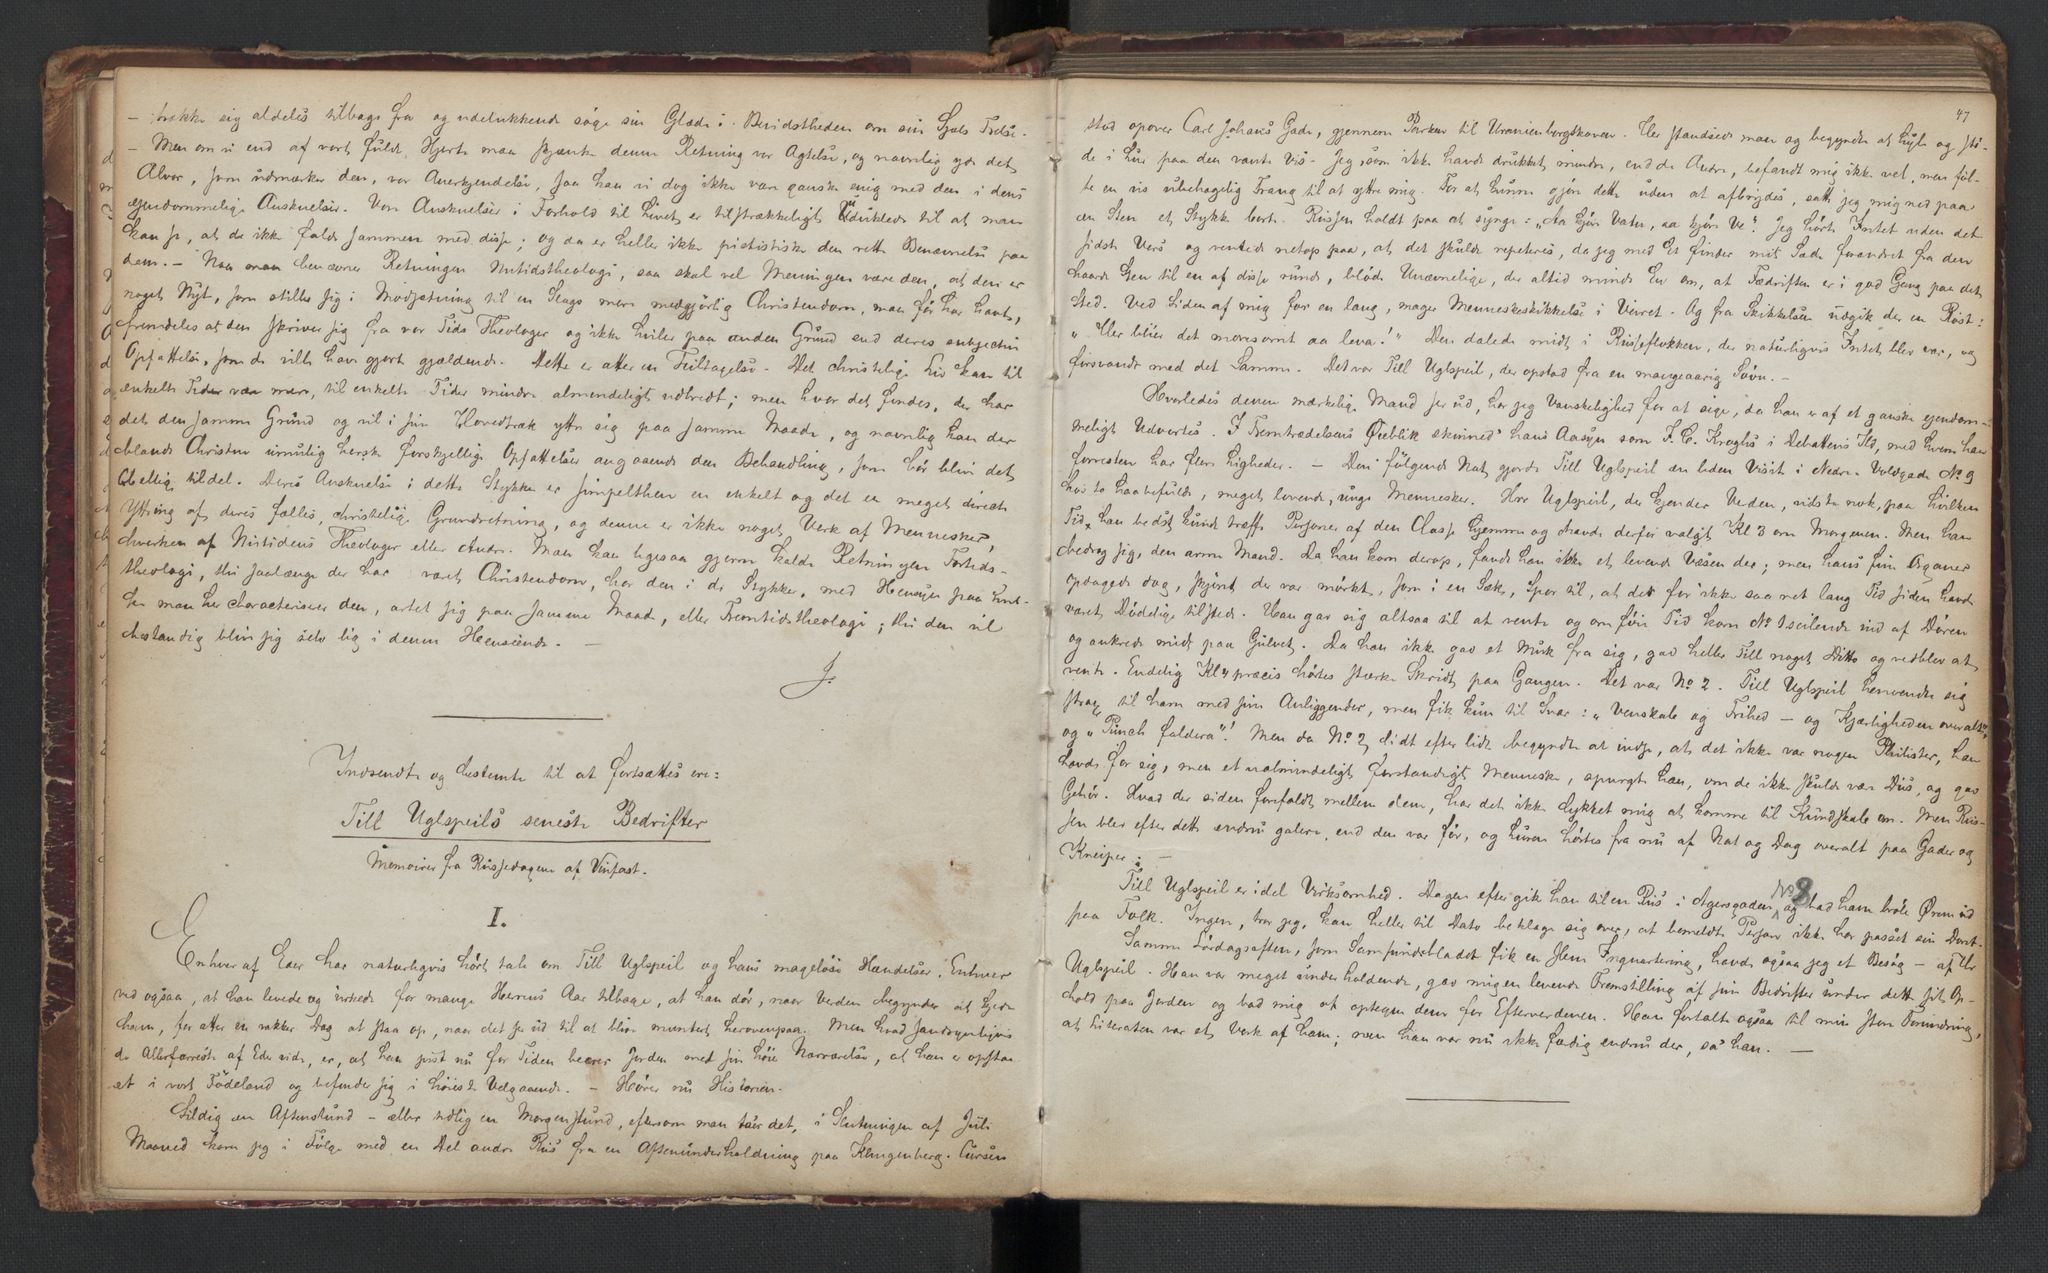 – trække sig aldeles tilbage fra og udelukkende søge sin Glæde i Bevidstheden om sin Sjæls Frelse.
– Men om vi end af vort fulde Hjerte maa skjænke denne Retning vor Agtelse, og navnlig yde det
Alvor, som udmærker den, vor Anerkjendelse, saa kan vi dog ikke være ganske enig med den i dens
ejendommelige Anskuelser. Vore Anskuelser i Forhold til Livet er tilstrækkeligt udviklede til at man
kan se, at de ikke falde sammen med disse; og da er heller ikke pietistiske den rette Benævnelse paa
dem. – Naar man benævner Retningen Nutidstheologi, saa skal vel Meningen være den, at den er
noget Nyt, som stiller sig i Modsætning til en Slags mere medgjørlig Christendom, man før har havt,
fremdeles at den skriver sig fra vor Tids Theologer og ikke hviler paa anden Grund end deres subjective
Opfattelse, som de ville have gjort gjældende. Dette er atter en Feiltagelse. Det christelige Liv kan til
enkelte Tider være mere, til enkelte Tider mindre almindeligt udbredt; men hvor det findes, der har
det den samme Grund og vil i sine Hovedtræk yttre sig paa samme Maade, og navnlig kan der
blandt Christne umulig herske forskjellige Opfattelser angaaende den Behandling, som bør blive det
Hellige tildel. Deres Anskuelse i dette Stykke er simpelthen en enkelt og det en meget direkte
Yttring af deres fælles, christelige Grundretning, og denne er ikke noget Værk af Mennesker,
hverken af Nutidens Theologer eller Andre. Man kan ligesaa gjerne kalde Retningen Fortids-
theologi, thi saalænge der har været Christendom, har den i de Stykker, med Hensyn paa hvil-
ke man her characteriserer den, artet sig paa samme Maade, eller Fremtidstheologi; thi den vil
bestandig blive sig selv lig i denne Henseende. –
J.
Indsendte og bestemte til at fortsættes ere:
Till Uglspeils seneste Bedrifter
Memoirer fra Russedagene af Vinfast.
I.
Enhver af Eder har naturligvis hørt tale om Till Uglspeil og hans mageløse Hændelser. Enhver
ved ogsaa, at han levede og virkede for mange Herrens Aar tilbage, at han dør, naar Verden begynder at kjede
ham, for atter en vakker Dag at staa op, naar det ser ud til at blive muntert herovenpaa. Men hvad sandsynligvis
de Allerfærreste af Eder vide, er, at han just nu for Tiden beærer Jorden med sin høie Nærværelse, at han er opstaa-
et i vort Fødeland og befinder sig i høieste Velgaaende. – Hører nu Historien.
Sildig en Aftenstund – eller tidlig en Morgenstund, eftersom man ta'er det, i Slutningen af Juli
Maaned kom jeg i Følge med en Del andre Rus fra en Aftenunderholdning paa Klingenberg. Cursen
47
stod opover Carl Johans Gade, gjennem Parken til Uranienborgskoven. Her standsede man og begyndte at hyle og stø-
de i Lure paa den vante Vis. Jeg, som ikke havde drukket mindre, end de Andre, befandt mig ikke vel, men føl-
te en vis ubehagelig Trang til at yttre mig. For at kunne gjøre dette uden at afbrydes, satte jeg mig ned paa
en Sten et Stykke bort. Russen holdt paa at synge: „Aa kjøre Vatn, aa kjøre Ve“. Jeg hørte Intet uden det
sidste Vers og ventede netop paa, at det skulde repeteres, da jeg med Et finder mit Sæde forandret fra den
haarde Sten til en af disse runde, bløde Unævnelige, der altid minde En om, at Fædriften er i god Gang paa det
Sted. Ved Siden af mig for en lang, mager Menneskeskikkelse i Veiret. Og fra Skikkelsen udgik der en Røst:
„Her bliver det moresomt aa leva!“ Den dalede midt i Russeflokken, der naturligvis Intet blev var, og
forsvandt med det Samme. Det var Till Uglspeil, der opstod fra en mangeaarig Søvn. –
Hvorledes denne mærkelige Mand ser ud, har jeg Vanskelighed for at sige, da han er af et ganske ejendom-
meligt Udvortes. I Fremtrædelsens Øieblik skinnede hans Aasyn som J. C. Kroghs i Debattens Ild, med hvem han
forresten har flere Ligheder. – Den følgende Nat gjorde Till Uglspeil en liden Visit i Nedre Voldgade No 9
hos to haabefulde, meget lovende, unge Mennesker. Herr Uglspeil, der kjender Verden, vidste nok, paa hvilken
Tid, han bedst kunde træffe Personer af den Classe hjemme og havde derfor valgt Kl 3 om Morgenen. Men han
bedrog sig, den arme Mand. Da han kom derop, fandt han ikke et levende Væsen der; men hans fine Organer
opdagede dog, skjønt der var mørkt, som i en Sæk, Spor til, at der for ikke saa ret lang Tid siden havde
været Dødelige tilstede. Han gav sig altsaa til at vente og om føie Tid kom No 1 seilende ind af Døren
og ankrede midt paa Gulvet. Da han ikke gav et Muk fra sig, gav heller Till noget Ditto og vedblev at
vente. Endelig Kl 4 præcis hørtes stærke Skridt paa Gangen. Det var No 2. Till Uglspeil henvendte sig
strax til ham med sine Anliggender, men fik kun til Svar: „Venskab og Frihed – og Kjærligheden overalt“,
og „Punch faldera“! Men da No 2 lidt efter lidt begyndte at indse, at det ikke var nogen Philister, han
havde for sig, men et ualmindeligt forstandigt Menneske, spurgte han, om de ikke skulde være Dus, og gav
Gehør. Hvad der siden forefaldt mellem dem, har det ikke lykket mig at komme til Kundskab om. Men Rus-
sen blev efter dette endnu galere, end den var før, og Luren hørtes fra nu af Nat og Dag overalt paa Gader og
Kneiper. –
Till Uglspeil er idel Virksomhed. Dagen efter gik han til en Rus i Agersgaden No 8 og bad ham bide Øren ud
paa Folk. Ingen, tror jeg, kan heller til Dato beklage sig over, at bemeldte Person ikke har passet sin Dont.
Samme Lørdagsaften, som Samfundsbladet fik en slem Inqvartering, havde ogsaa jeg et Besøg – af Hr
Uglspeil. Han var meget underholdende, gav mig en levende Fremstilling af sine Bedrifter under dette sit Op-
hold paa Jorden og bad mig at optegne dem for Efterverdenen. Han fortalte ogsaa til min store Forundring,
at Literaten var et Værk af ham; men han var nu ikke færdig endnu der, sa' han. –